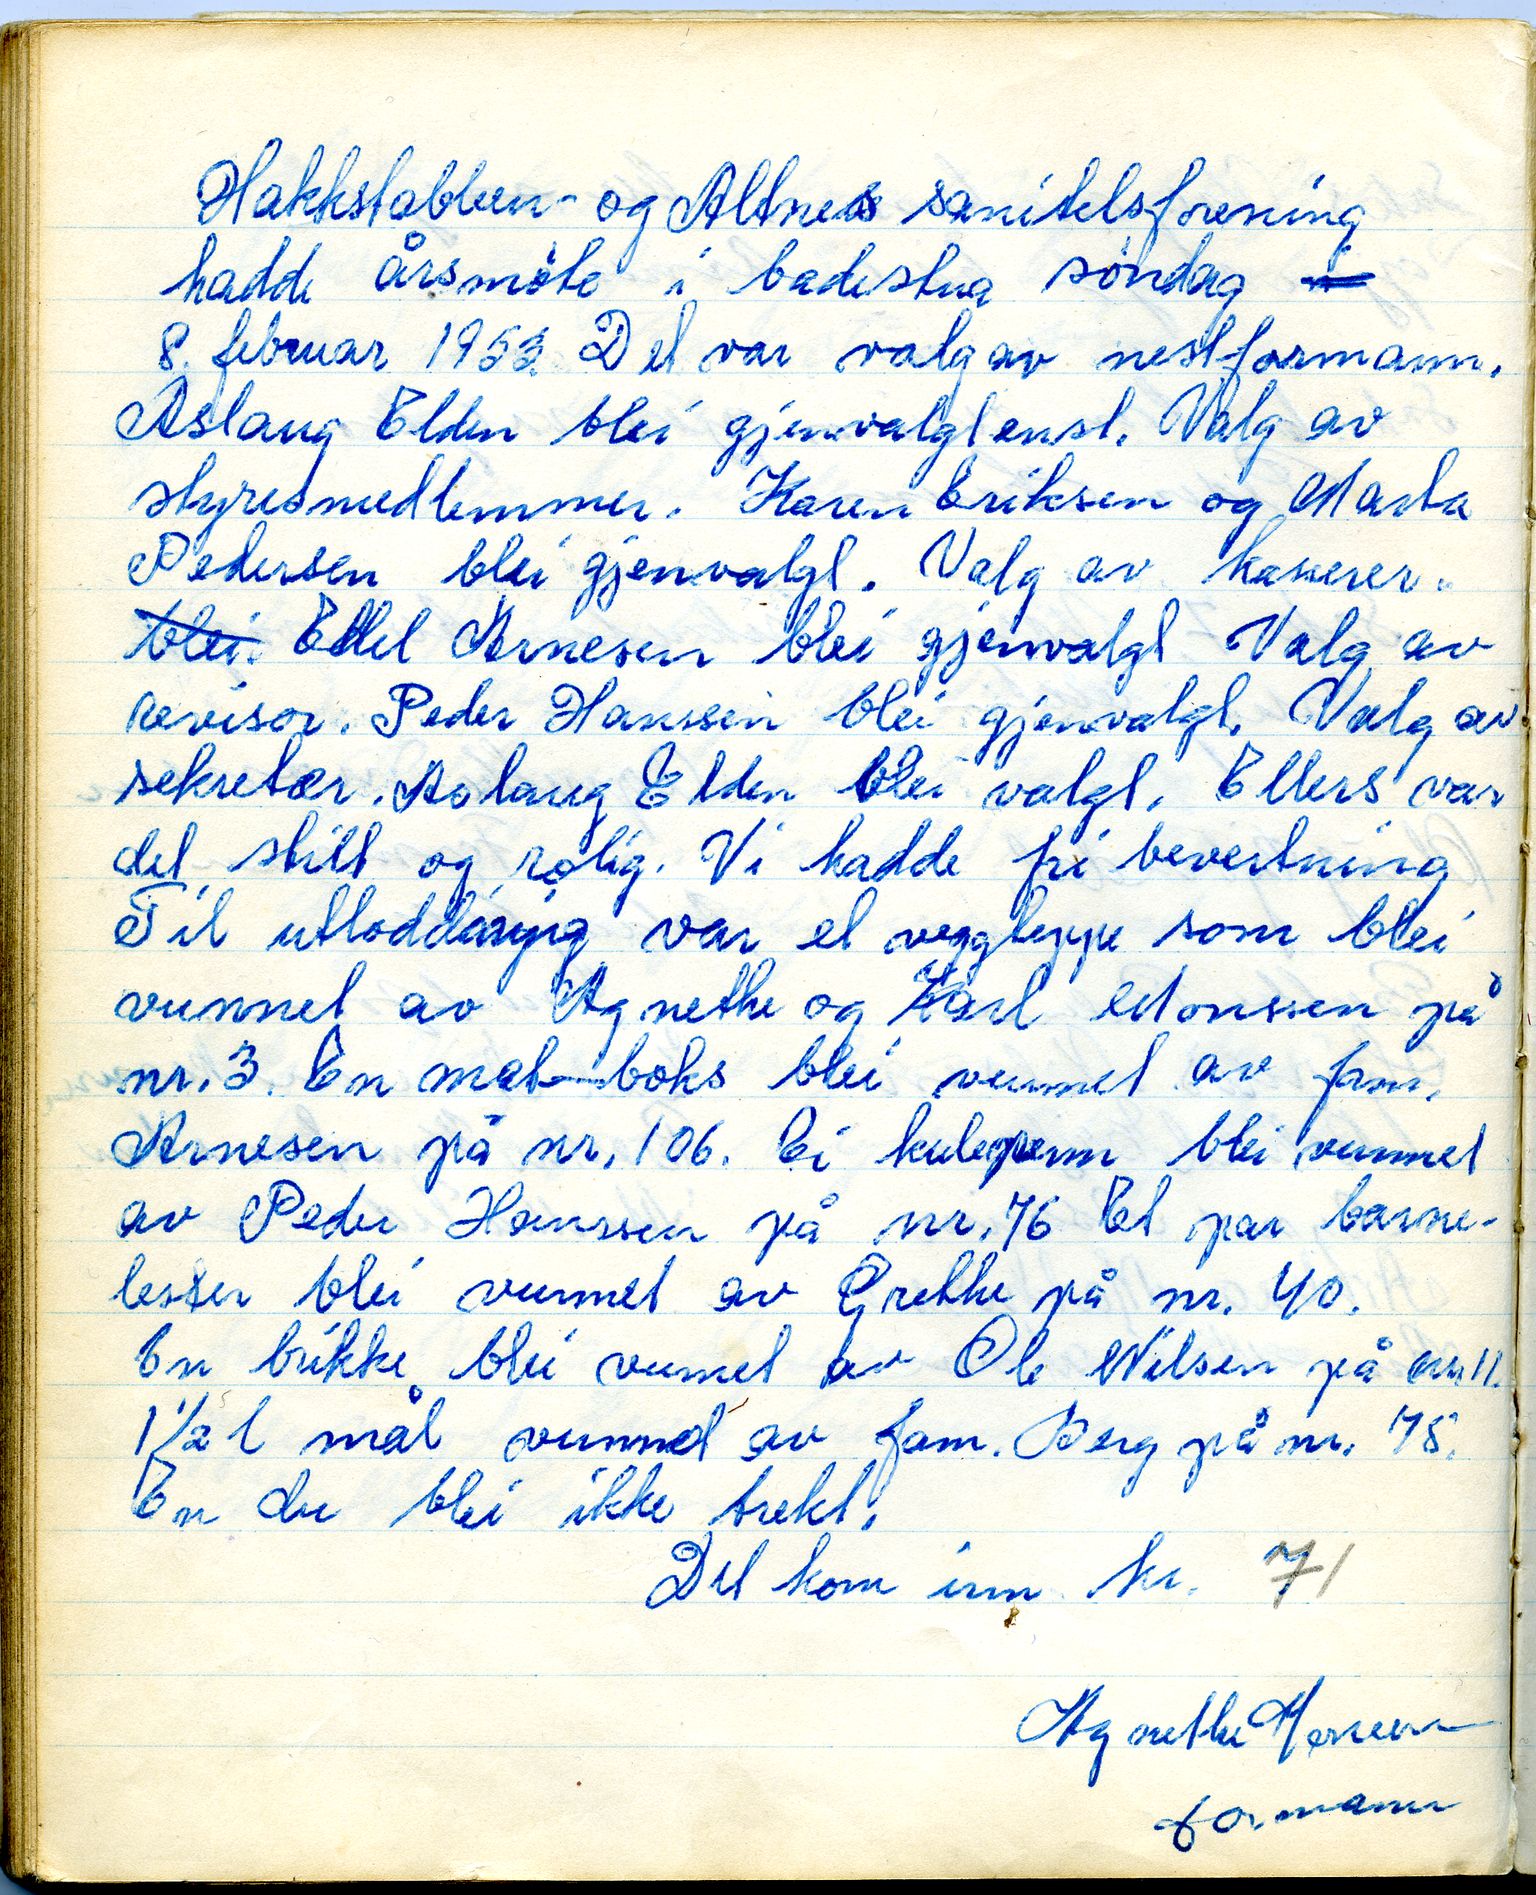 Hakkstabben- og Altnes sanitetsforening
hadde årsmöte i badestua söndag
8. februar 1953. Det var valg av nestformann.
Aslaug Elden blei gjenvalgt enst. Valg av
styresmedlemmer. Karen Eriksen og Marta
Pedersen blei gjenvalgt. Valg av kasserer.
blei Ellel Arnesen blei gjenvalgt Valg av
revisor. Peder Hanssen blei gjenvalgt. Valg av
sekretær. Aslaug Elden blei valgt. Ellers var
det stilt og rolig. Vi hadde fri bevertning
Til utloddning var et veggteppe som blei
vunnet av Agnethe og Karl Monssen på
nr. 3. En mat-boks blei vunnet av fam.
Arnesen på nr. 106. Ei kulepenn blei vunnet
av Peder Hanssen på nr. 76 Et par barne-
lester blei vunnet av Grethe på nr. 40.
En brikke blei vunnet av Ole Nilsen på nr 11.
1 1/2 l mål vunnet av fam. Berg på nr. 75.
En due blei ikke trekt.
Det kom inn kr. 71
Agnethe
formann